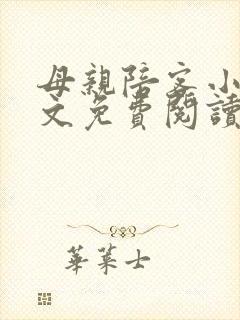 母親陪客小
文免費閱讀
華萊士